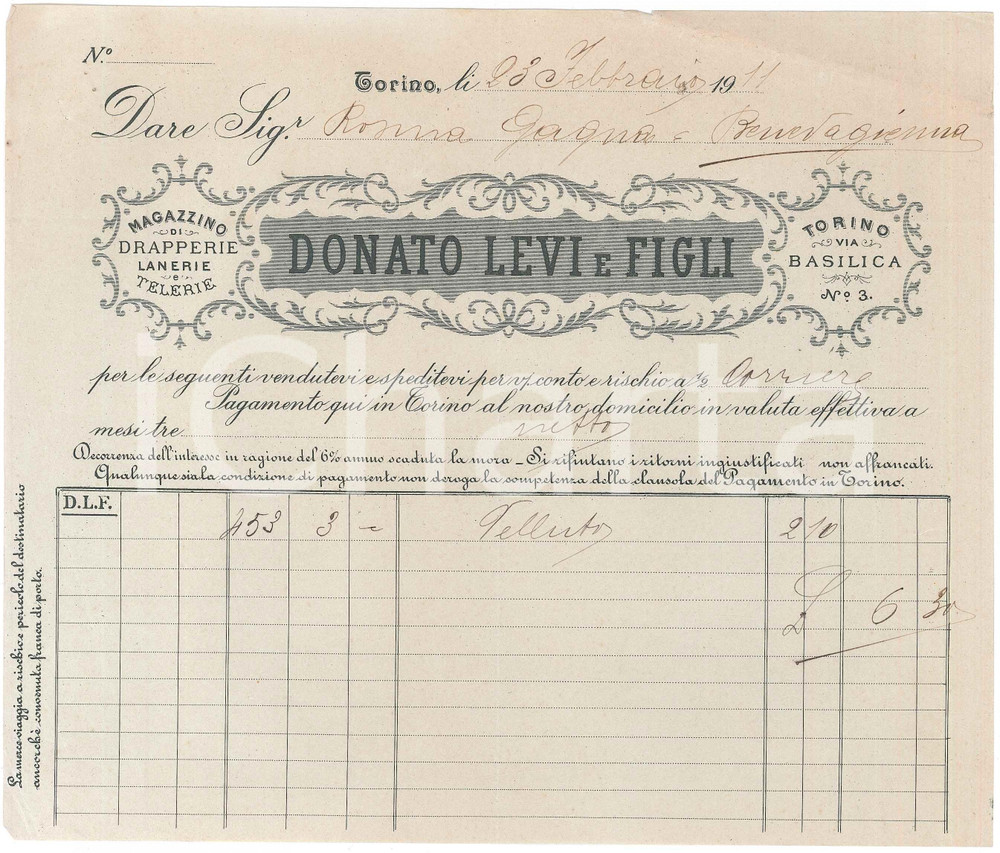 N.º
Torino, li 23 Febbraio 1911
Dare Sig.r Romna Gagna = Benevagienna
MAGAZZINO
DI
DRAPPERIE
LANERIE
e
TELERIE
DONATO LEVI E FIGLI
TORINO
VIA
BASILICA
Nº 3.
per le seguenti vendutevi e speditevi per v/ conto e rischio a ½ Corriere
Pagamento qui in Torino al nostro domicilio in valuta effettiva a
mesi tre netto
Decorrenza dell'interesse in ragione del 6% annuo scaduta la mora – Si rifiutano i ritorni ingiustificati non affrancati.
Qualunque sia la condizione di pagamento non deroga la competenza della clausola del Pagamento in Torino.
D.L.F.
453 3 = Velluto 2 10
£ 6 30
La merce viaggia a rischio e pericolo del destinatario
ancorchè convenuta franca di porto.
iCharta